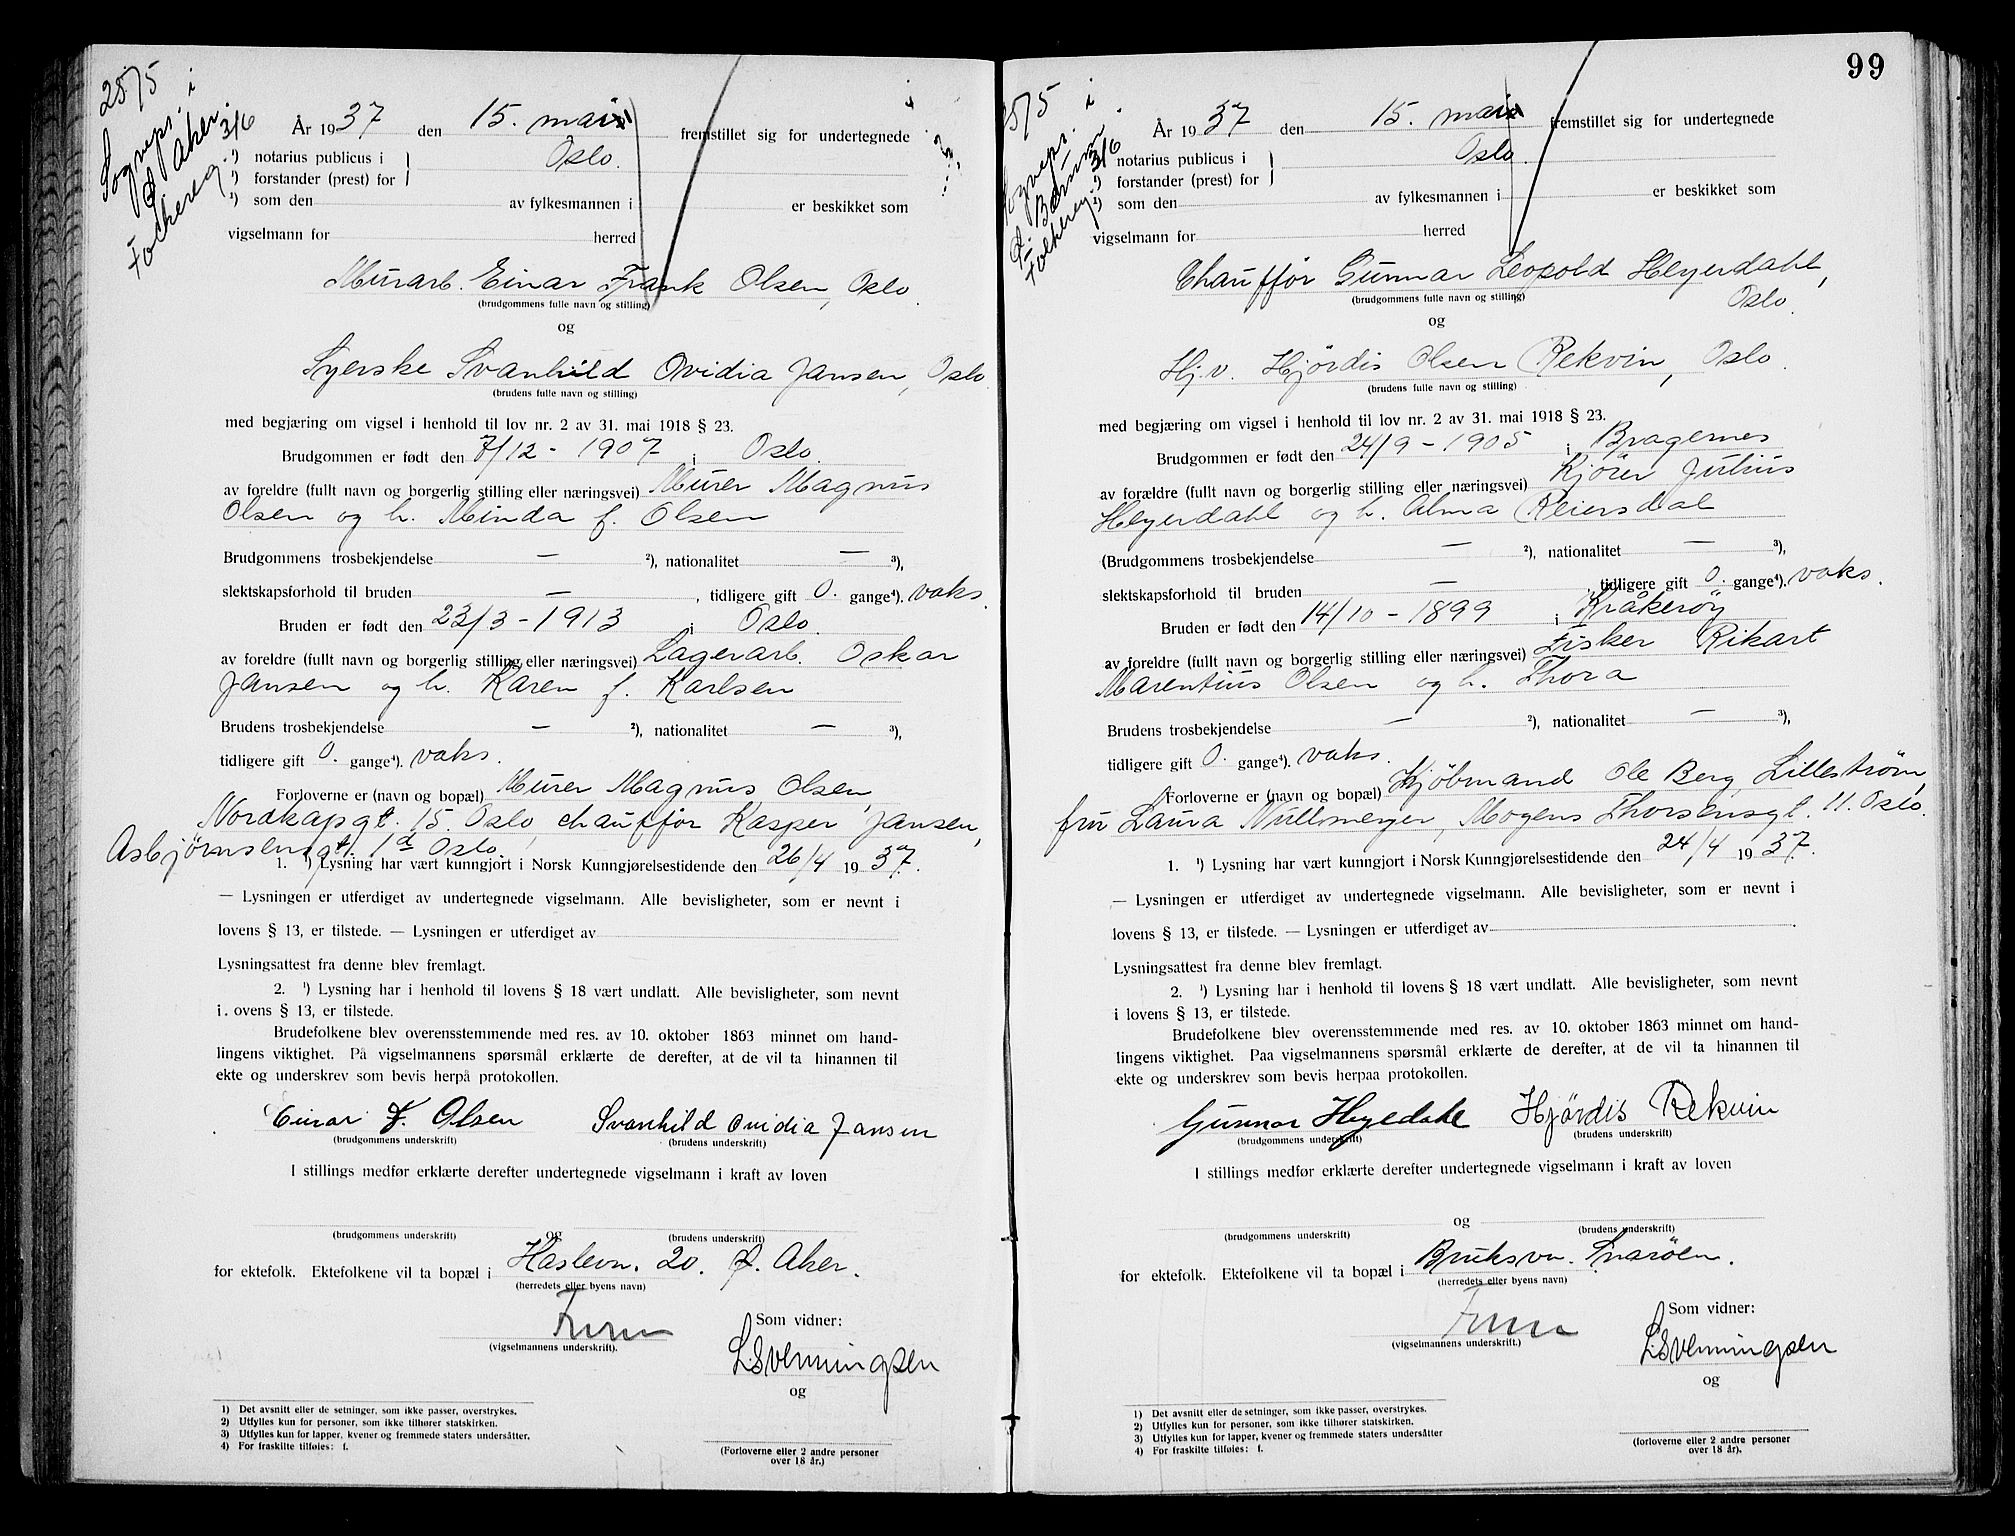 28/5
Sognepr. i
Ø. Aker.
Folkereg. 3/6
År 1937 den 15. mai fremstillet sig for undertegnede
¹) notarius publicus i Oslo.
¹) forstander (prest) for
¹) som den av fylkesmannen i er beskikket som
vigselmann for herred
Murarb. Einar Frank Olsen, Oslo.
(brudgommens fulle navn og stilling)
og
Syerske Svanhild Ovidia Jansen, Oslo.
(brudens fulle navn og stilling)
med begjæring om vigsel i henhold til lov nr. 2 av 31. mai 1918 § 23.
Brudgommen er født den 7/12 - 1907 i Oslo.
av foreldre (fullt navn og borgerlig stilling eller næringsvei) Murer Magnus
Olsen og h. Minda f. Olsen
Brudgommens trosbekjendelse — ²), nationalitet — ³),
slektskapsforhold til bruden — , tidligere gift 0. gange⁴). vaks.
Bruden er født den 23/3 - 1913 i Oslo.
av foreldre (fullt navn og borgerlig stilling eller næringsvei) Lagerarb. Oskar
Jansen og h. Karen f. Karlsen
Brudens trosbekjendelse — ²), nationalitet — ³),
tidligere gift 0. gange⁴). vaks.
Forloverne er (navn og bopæl) Murer Magnus Olsen,
Nordkapgt. 15. Oslo, chauffør Kasper Jansen,
Asbjørnsensgt. 1a Oslo.
1. ¹) Lysning har vært kunngjort i Norsk Kunngjørelsestidende den 26/4 1937.
— Lysningen er utferdiget av undertegnede vigselmann. Alle bevisligheter, som er nevnt i
lovens § 13, er tilstede. — Lysningen er utferdiget av
Lysningsattest fra denne blev fremlagt.
2. ¹) Lysning har i henhold til lovens § 18 vært undlatt. Alle bevisligheter, som nevnt
i. ovens § 13, er tilstede.
Brudefolkene blev overensstemmende med res. av 10. oktober 1863 minnet om hand-
lingens viktighet. På vigselmannens spørsmål erklærte de derefter, at de vil ta hinannen til
ekte og underskrev som bevis herpå protokollen.
Einar F. Olsen Svanhild Ovidia Jansen
(brudgommens underskrift) (brudens underskrift)
I stillings medfør erklærte derefter undertegnede vigselmann i kraft av loven
og
(brudgommens underskrift) (brudens underskrift)
for ektefolk. Ektefolkene vil ta bopæl i Haslevn. 20. Ø. Aker.
(herredets eller byens navn)
(vigselmannens underskrift).
Som vidner:
L. Svenningsen
og
(Forloverne eller 2 andre personer
over 18 år.)
1) Det avsnitt eller de setninger, som ikke passer, overstrykes.
2) Utfylles kun for personer, som ikke tilhører statskirken.
3) Utfylles kun for lapper, kvener og fremmede staters undersåtter.
4) For fraskilte tilføies: f.
99
28/5
Sognepr. i
Ø. Bærum.
Folkereg. 3/6
År 1937 den 15. mai fremstillet sig for undertegnede
¹) notarius publicus i Oslo.
¹) forstander (prest) for
¹) som den av fylkesmannen i er beskikket som
vigselmann for herred
Chauffør Gunnar Leopold Heyerdahl,
(brudgommens fulle navn og stilling) Oslo.
og
Hj.v. Hjördis Olsen Rekvin, Oslo.
(brudens fulle navn og stilling)
med begjæring om vigsel i henhold til lov nr. 2 av 31. mai 1918 § 23.
Brudgommen er født den 24/9 - 1905 i Bragernes
av forældre (fullt navn og borgerlig stilling eller næringsvei) Kjører Julius
Heyerdahl og h. Alma Reiersdal
(Brudgommens trosbekjendelse — ²), nationalitet — ³),
slektskapsforhold til bruden — , tidligere gift 0. gange⁴). vaks.
Bruden er født den 14/10 - 1899 i Kråkerøy
av foreldre (fullt navn og borgerlig stilling eller næringsvei) Fisker Rikart
Marentius Olsen og h. Thora
Brudens trosbekjendelse — ²), nationalitet — ³),
tidligere gift 0. gange⁴). vaks.
Forloverne er (navn og bopæl) Kjöbmand Ole Berg, Lillestrøm,
fru Laura Nullmeyer, Mogens Thorsensgt. 11. Oslo.
1. ¹) Lysning har vært kunngjort i Norsk Kunngjørelsestidende den 24/4 1937.
— Lysningen er utferdiget av undertegnede vigselmann. Alle bevisligheter, som er nevnt i
lovens § 13, er tilstede. — Lysningen er utferdiget av
Lysningsattest fra denne blev fremlagt.
2. ¹) Lysning har i henhold til lovens § 18 vært undlatt. Alle bevisligheter, som nevnt
i lovens § 13, er tilstede.
Brudefolkene blev overensstemmende med res. av 10. oktober 1863 minnet om hand-
lingens viktighet. Paa vigselmannens spørsmål erklærte de derefter, at de vil ta hinannen til
ekte og underskrev som bevis herpaa protokollen.
Gunnar Heyedahl Hjördis Rekvin
(brudgommens underskrift) (brudens underskrift)
I stillings medfør erklærte derefter undertegnede vigselmann i kraft av loven
og
(brudgommens underskrift) (brudens underskrift)
for ektefolk. Ektefolkene vil ta bopæl i Bruksvn. Snarøen.
(herredets eller byens navn)
(vigselmannens underskrift.)
Som vidner:
L. Svenningsen
og
(forloverne eller 2 andre personer
over 18 år).
1) Det avsnitt eller de setninger, som ikke passer, overstrykes.
2) Utfylles kun for personer, som ikke tilhører statskirken.
3) Utfylles kun for lapper, kvener og fremmede staters undersåtter
4) For fraskilte tilføies: f.